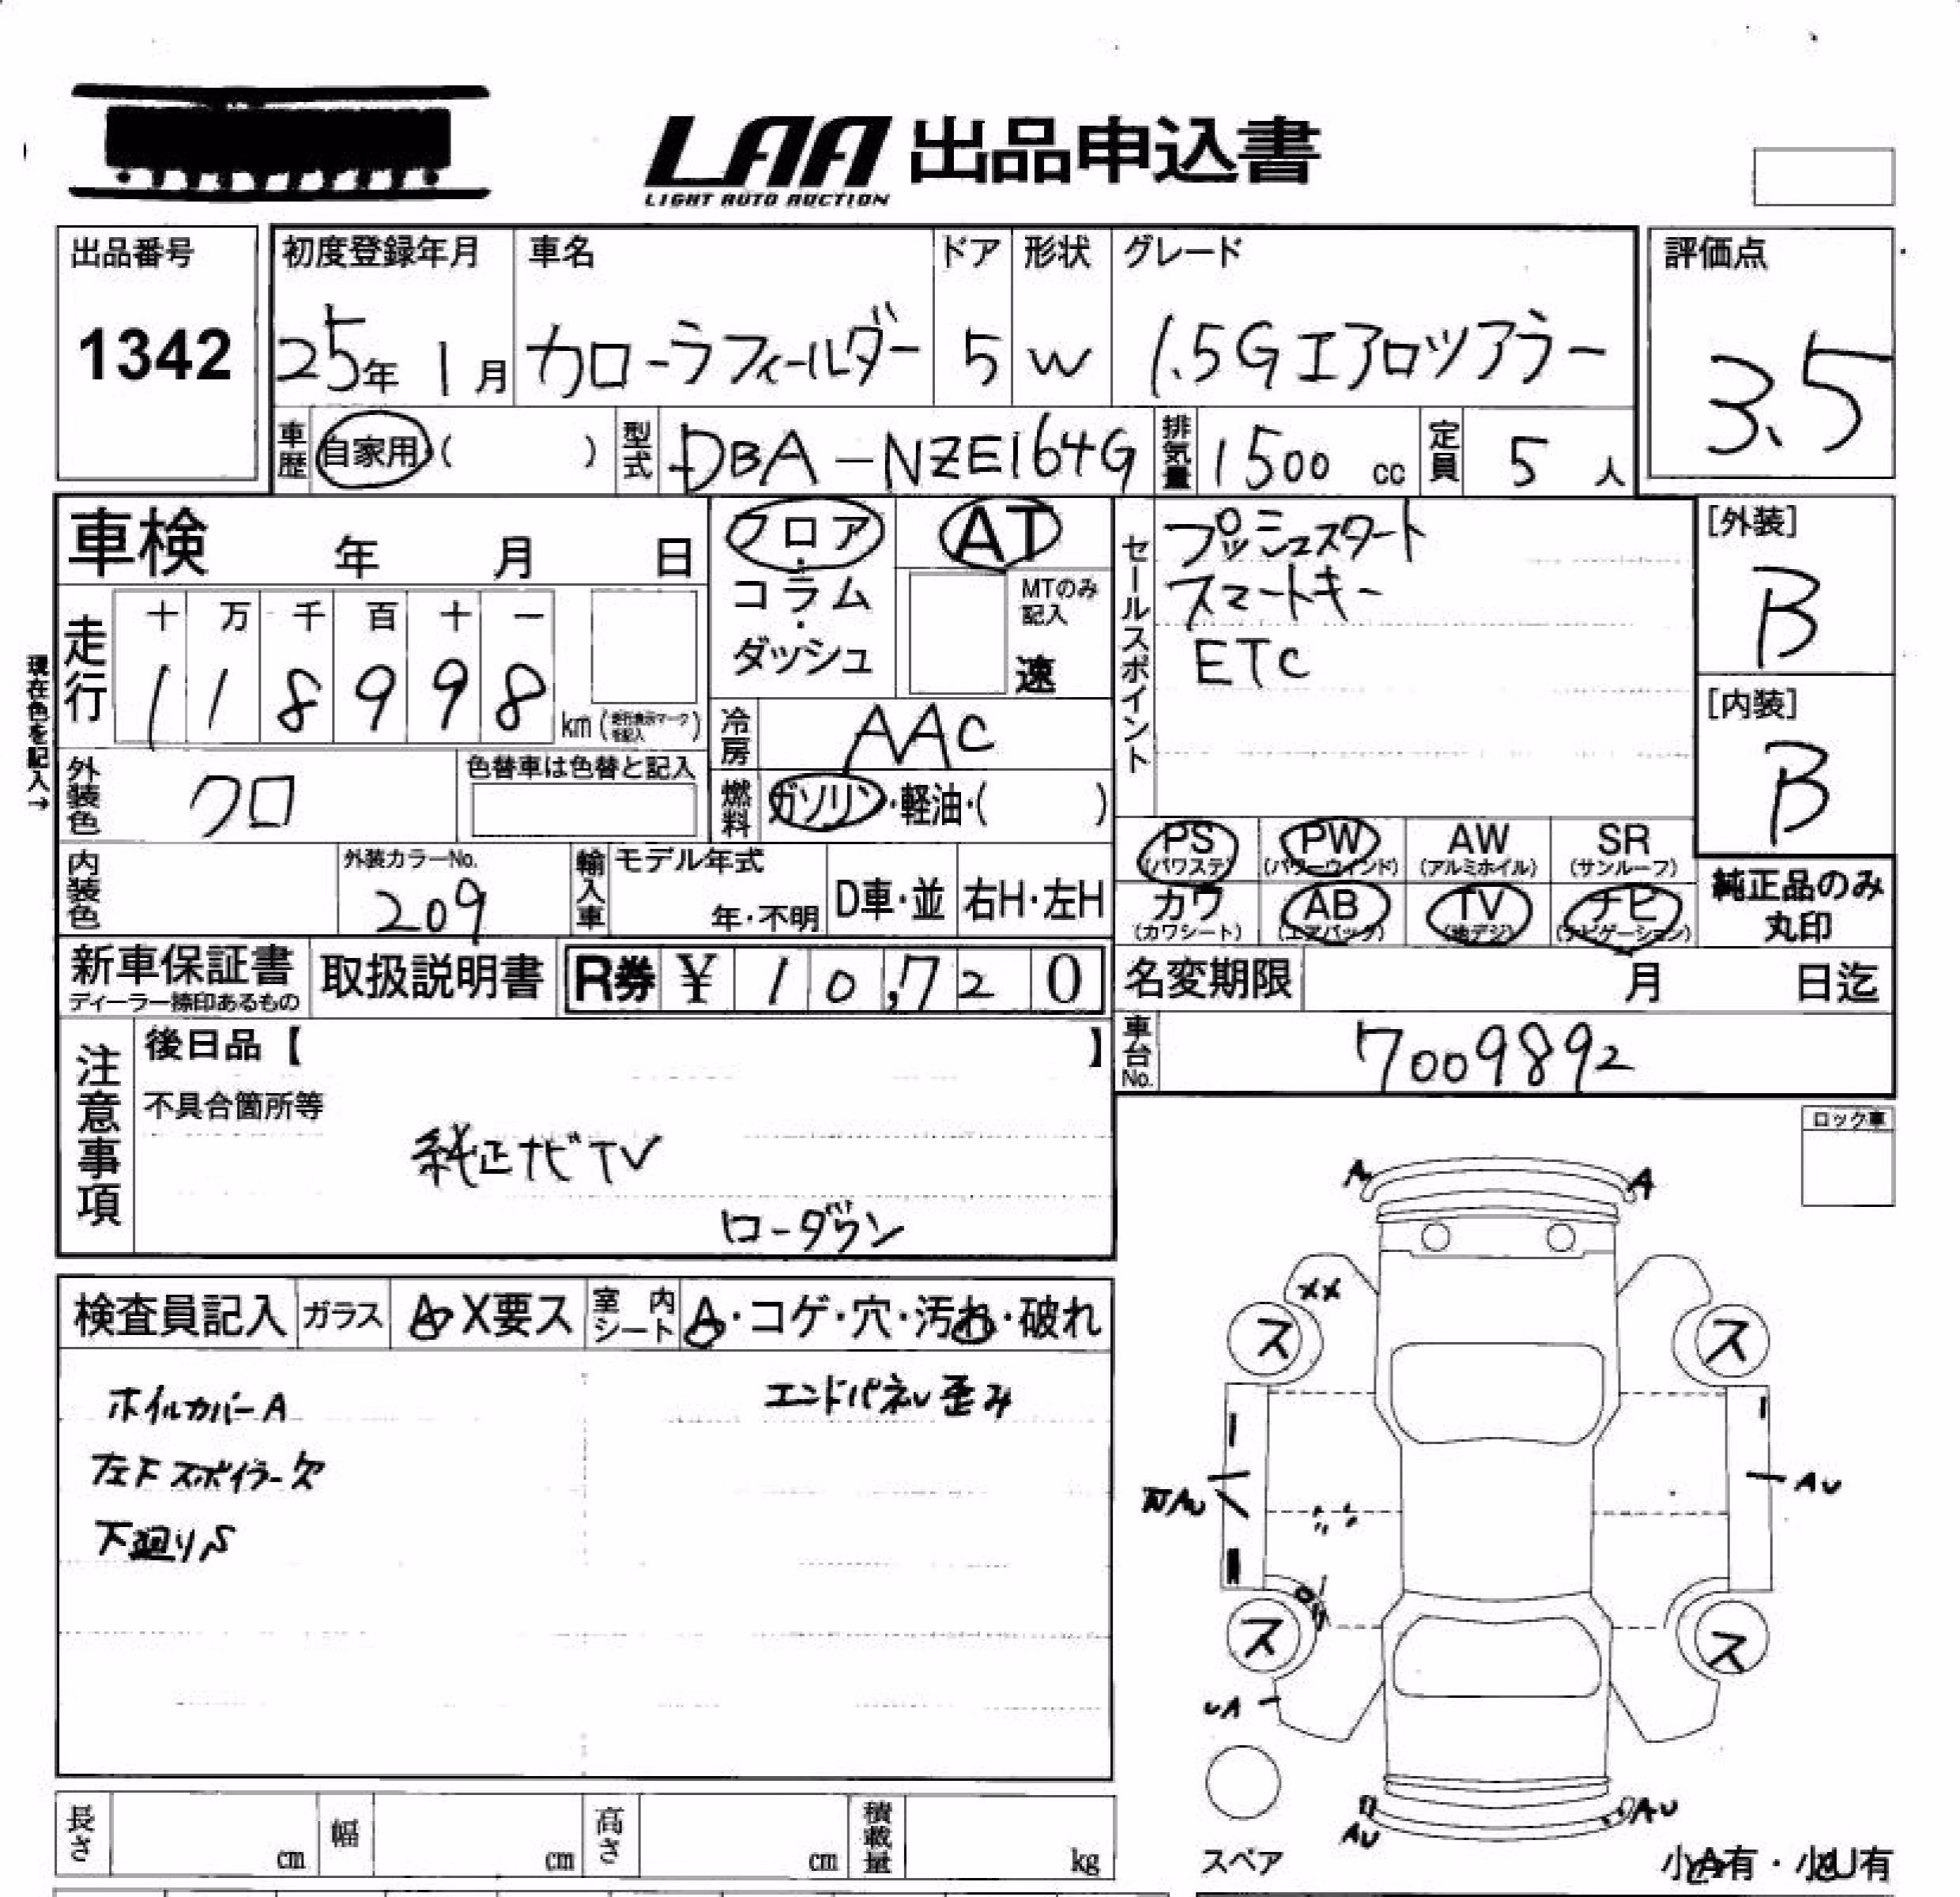 LAA 出品申込書
LIGHT AUTO AUCTION
出品番号
1342
初度登録年月
25年 1月
車名
カローラフィールダー
ドア
5
形状
W
グレード
1.5G エアロツアラー
評価点
3.5
車歴 自家用 ( )
型式 DBA-NZE164G
排気量 1500 cc
定員 5 人
車検 年 月 日
フロア・コラム・ダッシュ
AT
MTのみ記入
速
セールスポイント
プッシュスタート
スマートキー
ETC
[外装]
B
[内装]
B
現在色を記入→
走行
十 万 千 百 十 一
1 1 8 9 9 8 km (走行表示マークを記入)
冷房 AAC
外装色 クロ
色替車は色替と記入
燃料 ガソリン・軽油・( )
PS (パワステ)
PW (パワーウィンド)
AW (アルミホイル)
SR (サンルーフ)
カワ (カワシート)
AB (エアバック)
TV (地デジ)
ナビ (ナビゲーション)
純正品のみ
丸印
内装色
外装カラーNo.
209
輸入車
モデル年式
年・不明
D車・並
右H・左H
新車保証書
ディーラー捺印あるもの
取扱説明書
R券 ¥ 10,720
名変期限 月 日迄
車台No. 7009892
注意事項
後日品【 】
不具合箇所等
純正ナビTV
ローダウン
ロック車
検査員記入
ガラス A・X要ス
室内シート A・コゲ・穴・汚れ・破れ
ホイルカバーA
エンドパネル歪み
左Fスポイラー欠
下廻りS
A
A
XX
ス
ス
AU
ス
ス
UA
AU
AU
スペア
小A有・小U有
長さ cm
幅 cm
高さ cm
積載量 kg